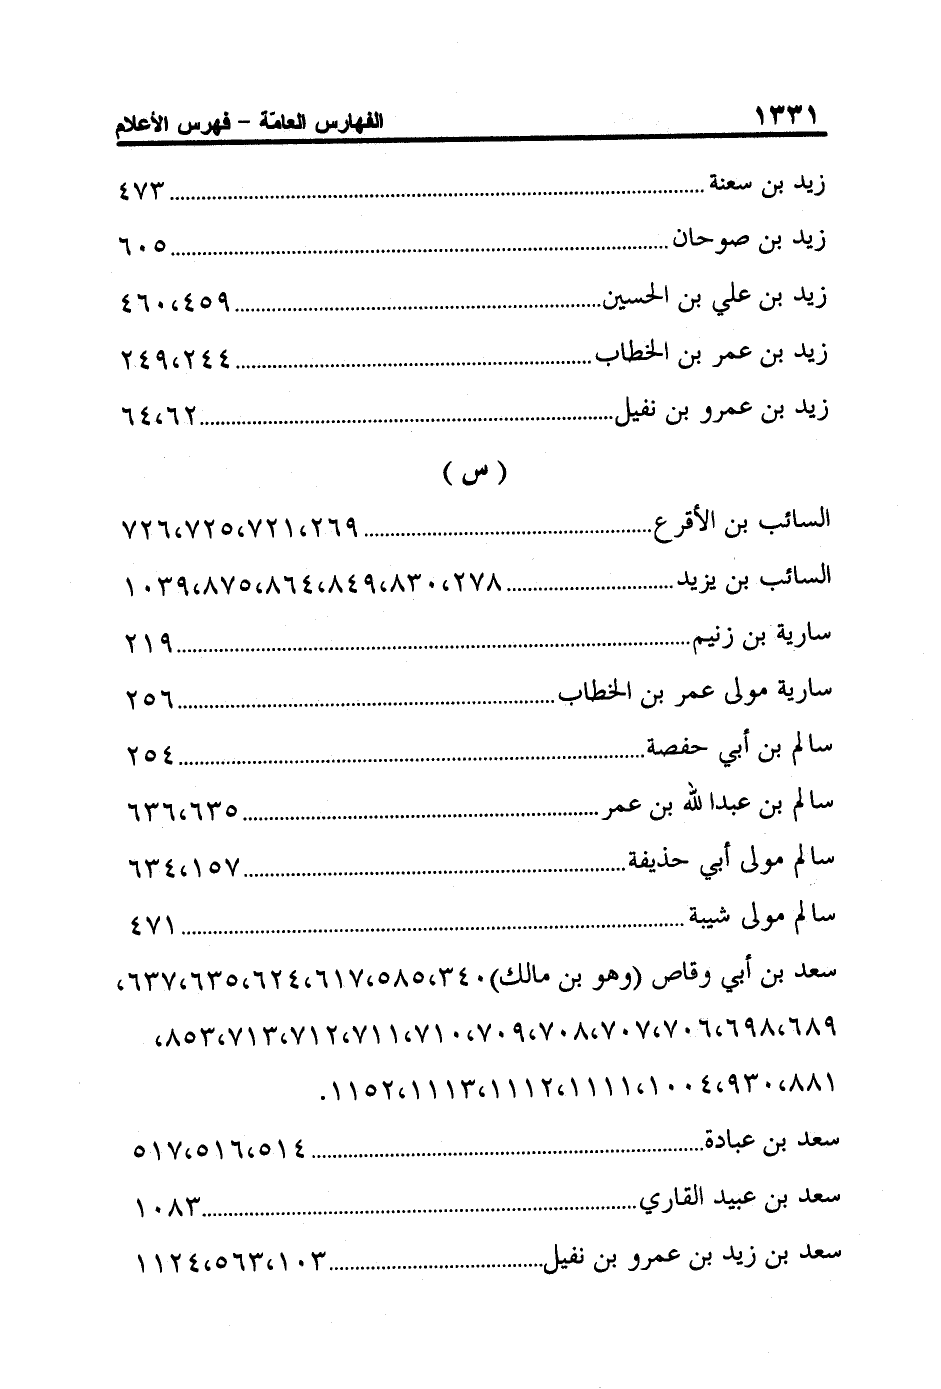 ١٣٣١ الفهارس العامّة - فهرس الأعلام
زيد بن سعنة ٤٧٣
زيد بن صوحان ٦٠٥
زيد بن علي بن الحسين ٤٥٩،٤٦٠
زيد بن عمر بن الخطاب ٢٤٤،٢٤٩
زيد بن عمرو بن نفيل ٦٢،٦٤
( س )
السائب بن الأقرع ٢٦٩،٧٢١،٧٢٥،٧٢٦
السائب بن يزيد ٢٧٨،٨٣٠،٨٤٩،٨٦٤،٨٧٥،١٠٣٩
سارية بن زنيم ٢١٩
سارية مولى عمر بن الخطاب ٢٥٦
سالم بن أبي حفصة ٢٥٤
سالم بن عبدالله بن عمر ٦٣٥،٦٣٦
سالم مولى أبي حذيفة ١٥٧،٦٣٤
سالم مولى شيبة ٤٧١
سعد بن أبي وقاص (وهو بن مالك) ٣٤٠،٥٨٥،٦١٧،٦٢٤،٦٣٥،٦٣٧،
٦٨٩،٦٩٨،٧٠٦،٧٠٧،٧٠٨،٧٠٩،٧١٠،٧١١،٧١٢،٧١٣،٨٥٣،
٨٨١،٩٣٠،١٠٠٤،١١١١،١١١٢،١١١٣،١١٥٢.
سعد بن عبادة ٥١٤،٥١٦،٥١٧
سعد بن عبيد القاري ١٠٨٣
سعد بن زيد بن عمرو بن نفيل ١٠٣،٥٦٣،١١٢٤